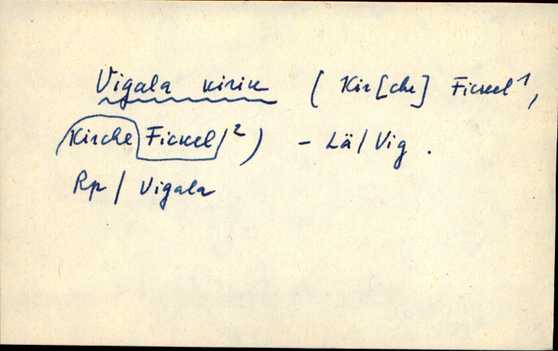 Vigala kirik (Kir[che] Fickel¹,
Kirche Fickel/²) – Lä/Vig.
Rp/Vigala